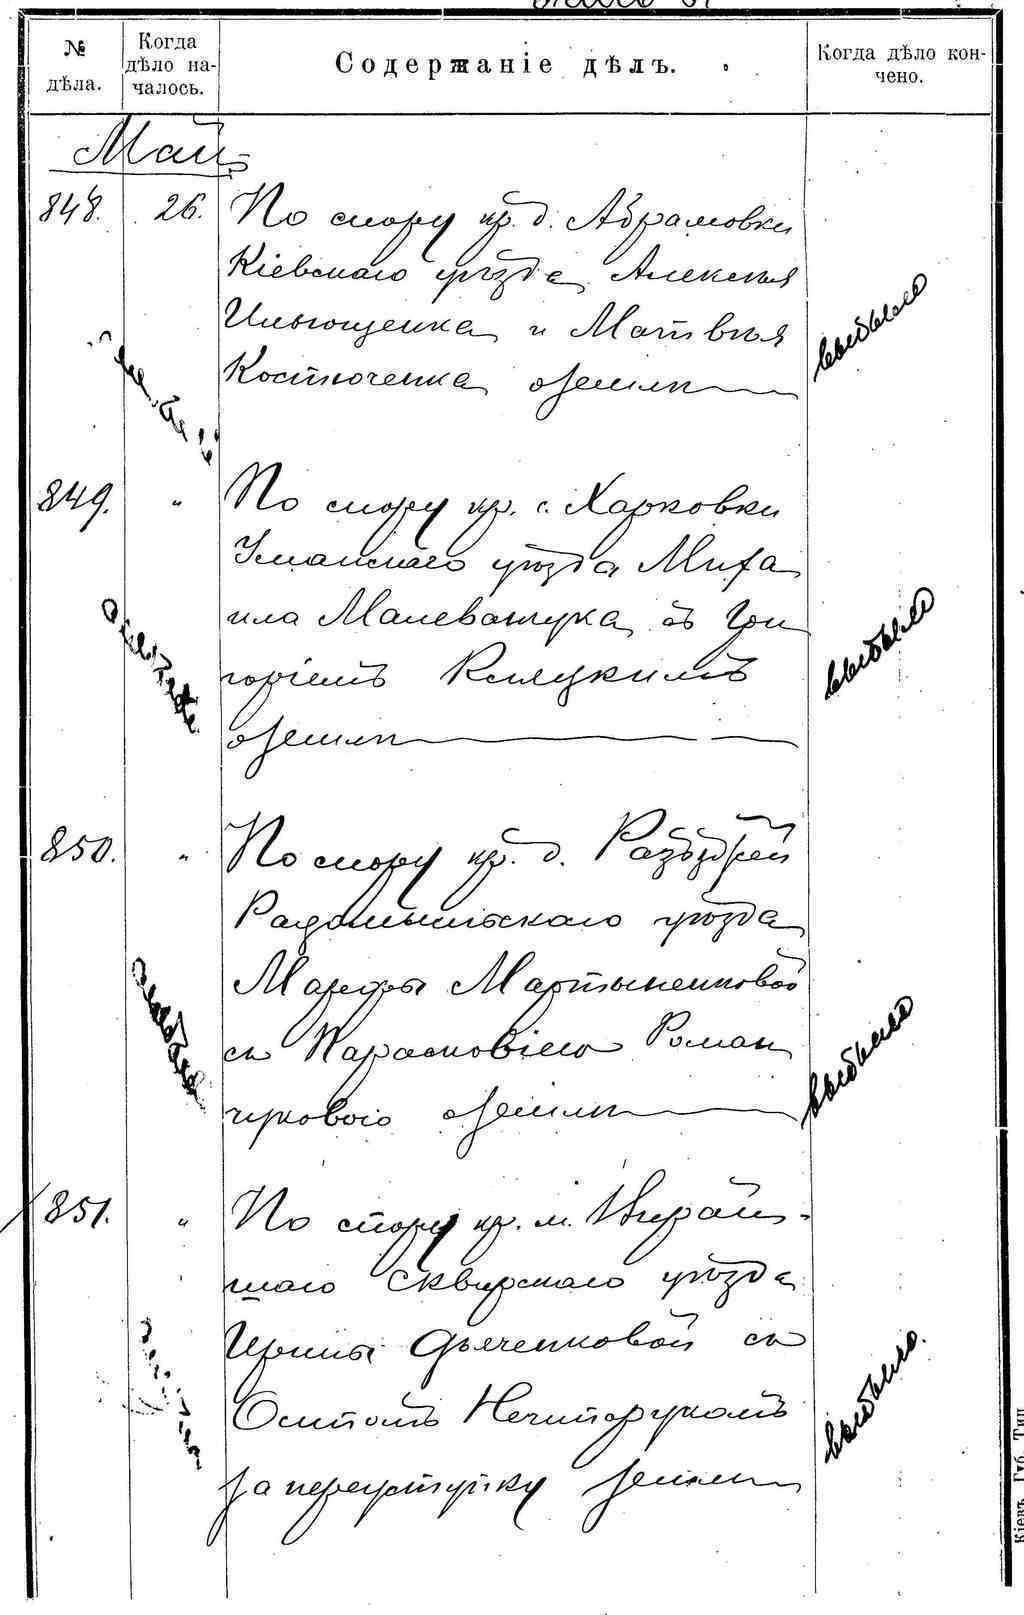 № дѣла.
Когда дѣло началось.
Содержаніе дѣлъ.
Когда дѣло кончено.
Май
848. 26. По спору кр. д. Абрамовки
Кіевскаго уѣзда Алексѣя
Ильющенка и Матвѣя
Костюченка о землѣ
выбыло
849. " По спору кр. с. Харковки
Уманскаго уѣзда Миха
ила Малеванчука съ Гри
горіемъ Кляцкимъ
о землѣ
выбыло
850. " По спору кр. д.
Радомысльскаго уѣзда
Марфы Мартыненковой
съ Парасковіею Роман
чуковою о землѣ
выбыло
851. " По спору кр. м.
Сквирскаго уѣзда
Ирины Дьяченковой съ
Осипомъ Нечипорукомъ
за переуступку земли
выбыло.